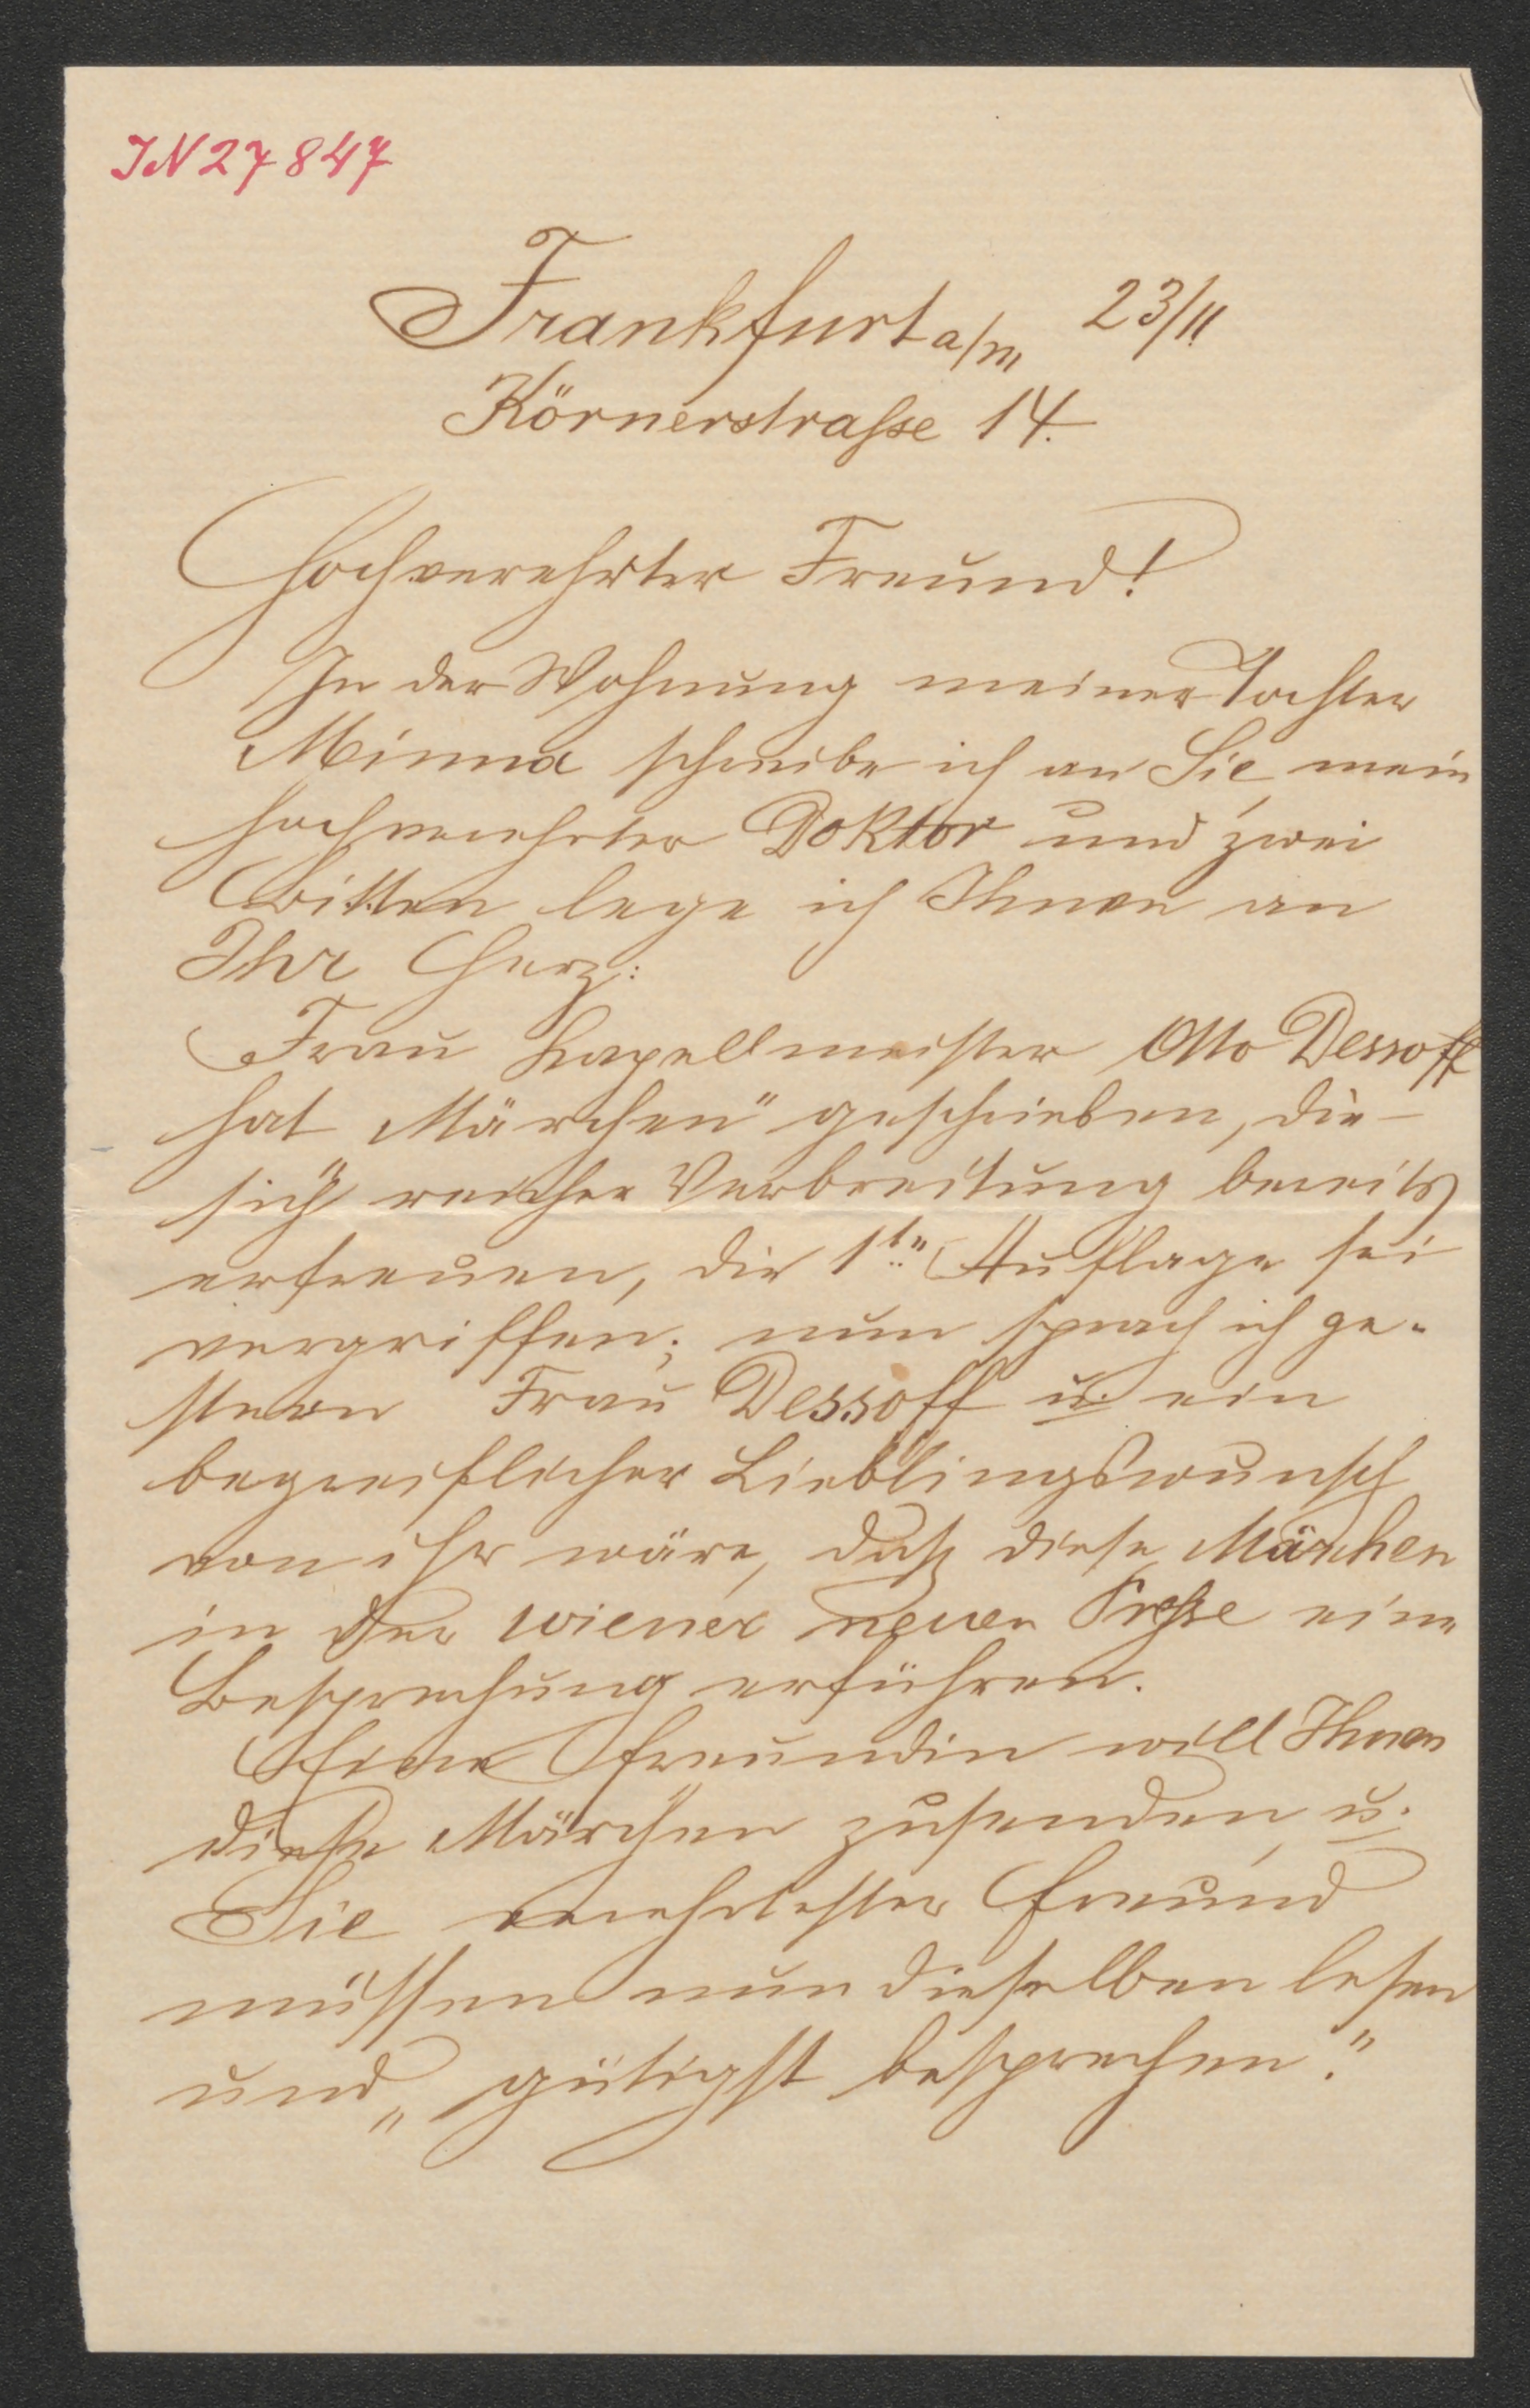 IN 27847
Frankfurt a/m 23/11
Körnerstrasse 14.
Hochverehrter Freund!
In der Wohnung meiner Tochter
Minna schreibe ich an Sie, mein
hochverehrter Doktor und zwei
Bitten lege ich Ihnen an
Ihr Herz:
Frau Kapellmeister Otto Dessoff
hat Märchen" geschrieben, die
sich reicher Verbreitung bereits
erfreuen, die 1te Auflage sei
vergriffen; nun sprach ich ge-
stern Frau Dessoff u. ein
begreiflicher Lieblingswunsch
von ihr wäre, daß diese Märchen
in der wiener neuen Presse eine
Besprechung erführen.
Freundin will Ihnen
diese Märchen zusenden u.
Sie verehrtester Freund
müssen nun dieselben lesen
und „gütigst besprechen."